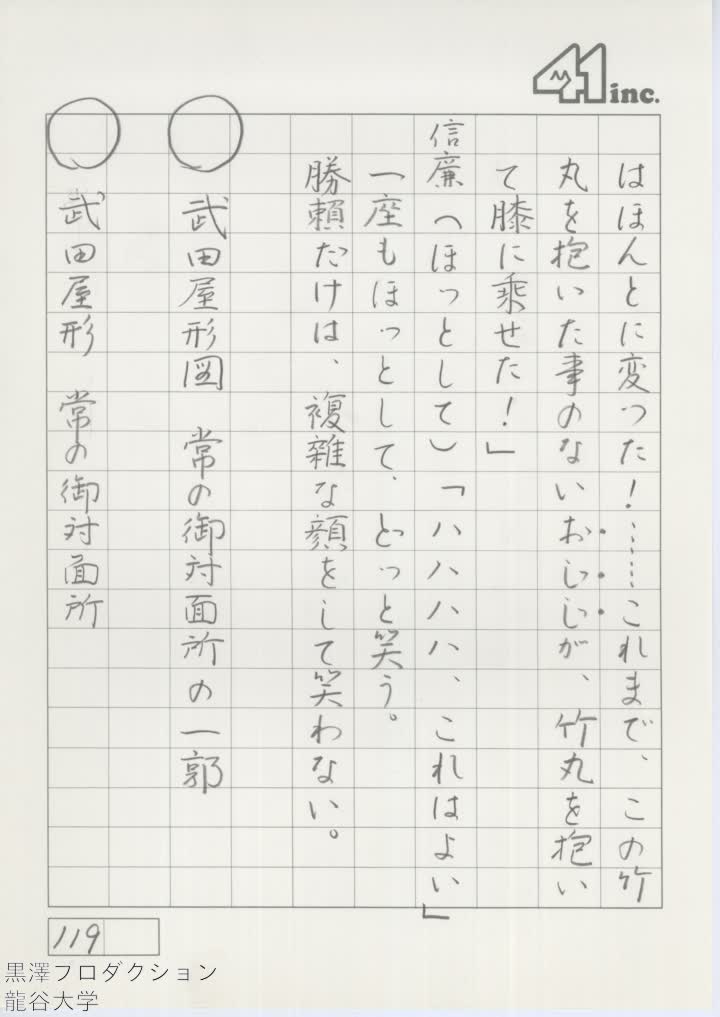 41 inc.
はほんとに変った!……これまで、この竹
丸を抱いた事のないおじじが、竹丸を抱い
て膝に乗せた!」
信廉(ほっとして)「ハハハハ、これはよい」
一座もほっとして、どっと笑う。
勝頼だけは、複雑な顔をして笑わない。
武田屋形図 常の御対面所の一郭
武田屋形 常の御対面所
119
黒澤プロダクション
龍谷大学